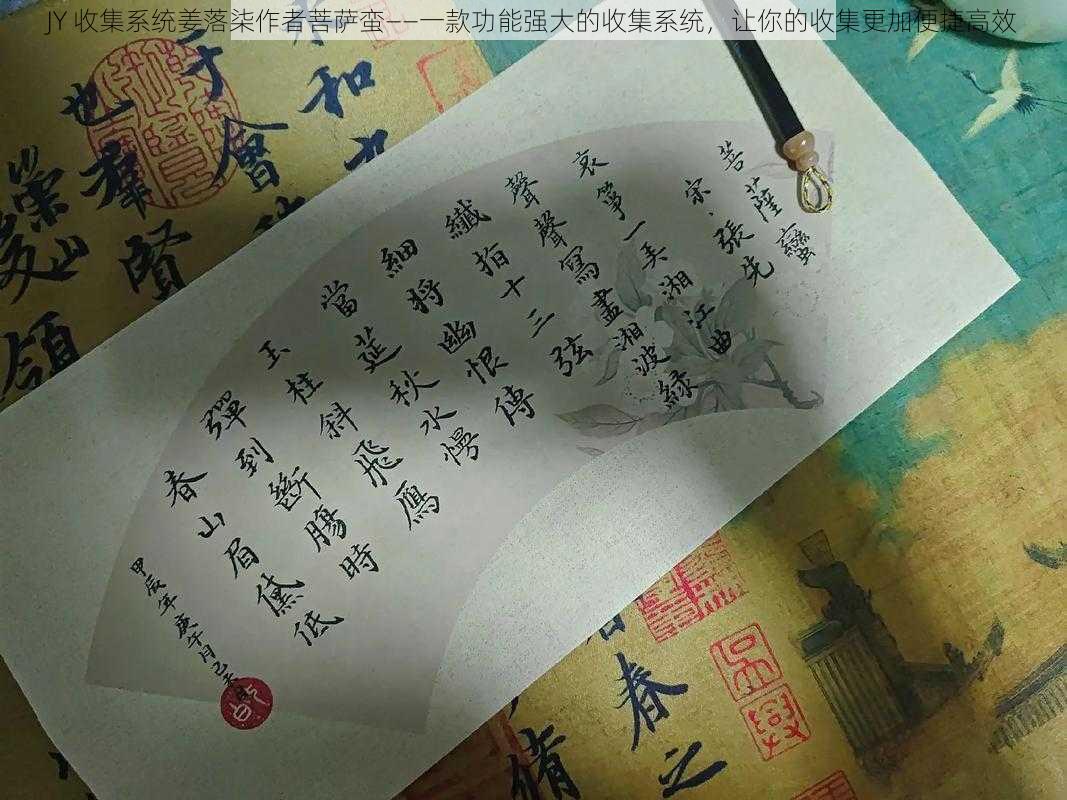 JY 收集系统姜落柒作者菩萨蛮——一款功能强大的收集系统，让你的收集更加便捷高效
菩薩蠻
宋、張先
哀箏一弄湘江曲
聲聲寫盡湘波綠
纖指十三弦
細將幽恨傳
當筵秋水慢
玉柱斜飛鴈
彈到斷腸時
春山眉黛低
甲辰年庚午月己
和九
于會
也羣賢
崇山
領
春之
脩